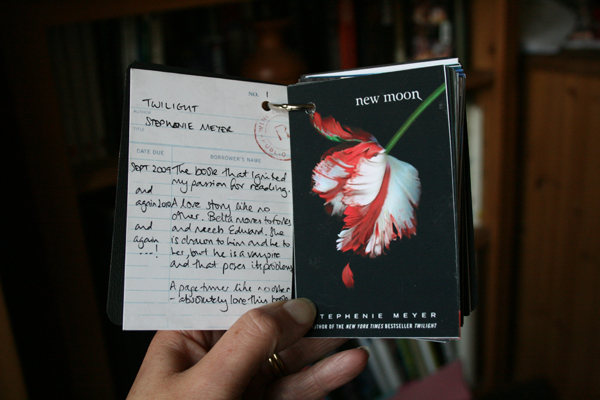 NO. 1
TWILIGHT
AUTHOR
STEPHENIE MEYER
TITLE
DATE DUE
BORROWER'S NAME
SEPT 2009 The book that ignited
my passion for reading.
and
again 2010 A love story like no
other. Bella moves to Forks
and and meets Edward. She
again is drawn to him and he to
---! her, but he is a vampire
and that poses its problems
A page turner like no other
- absolutely love this book
new moon
STEPHENIE MEYER
AUTHOR OF THE NEW YORK TIMES BESTSELLER TWILIGHT